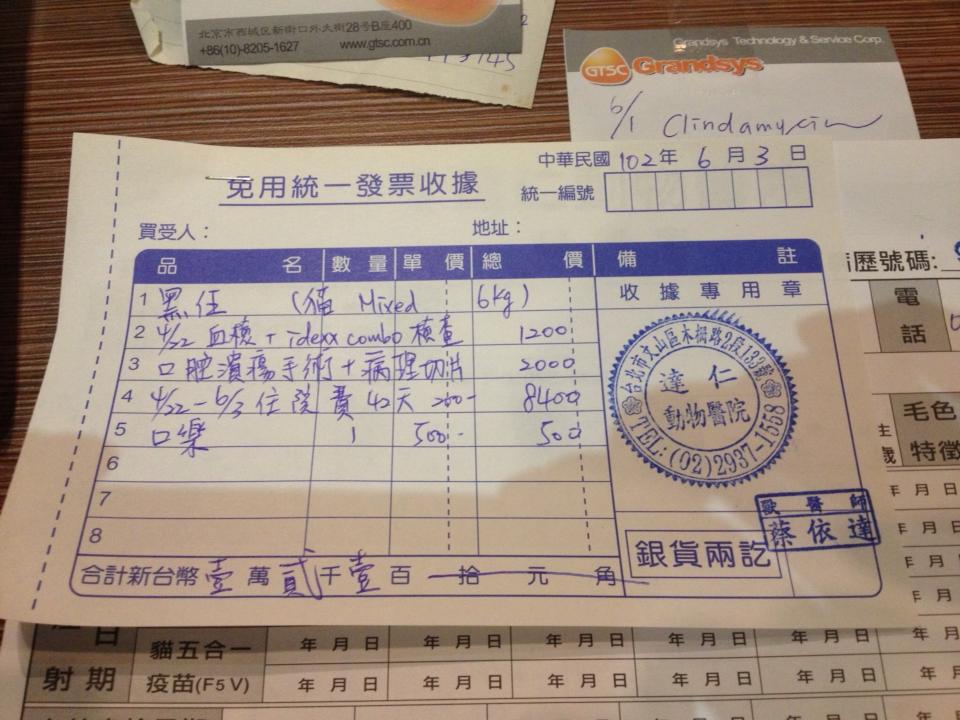 北京市西城区新街口外大街28号B座400
+86(10)-8205-1627 www.gtsc.com.cn
Grandsys Technology & Service Corp.
GTSC Grandsys
6/1 Clindamycin
中華民國102年6月3日
免用統一發票收據
統一編號
買受人: 地址:
品名 數量 單價 總價 備註
1 黑仔 (貓 Mixed 6kg)
收據專用章
2 4/22 血檢 + idexx combo 檢查 1200
3 口腔潰瘍手術 + 病理切片 2000
4 4/22-6/3 住院費 42天 200- 8400
5 口樂 1 500- 500
6
7
8
台北市文山區木柵路2段132號
達仁
動物醫院
TEL:(02)2937-1558
獸醫師
蔡依達
銀貨兩訖
合計新台幣壹萬貳千壹百拾元角
歷號碼:
電
話
毛色
特徵
年月日
貓五合一
疫苗(F5V)
射期
年月日 年月日 年月日 年月日 年月日
年月日 年月日 年月日 年月日 年月日